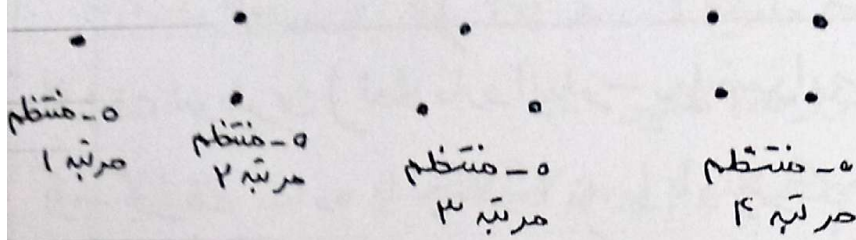 ۰-منتظم
مرتبه ۱
۰-منتظم
مرتبه ۲
۰-منتظم
مرتبه ۳
۰-منتظم
مرتبه ۴